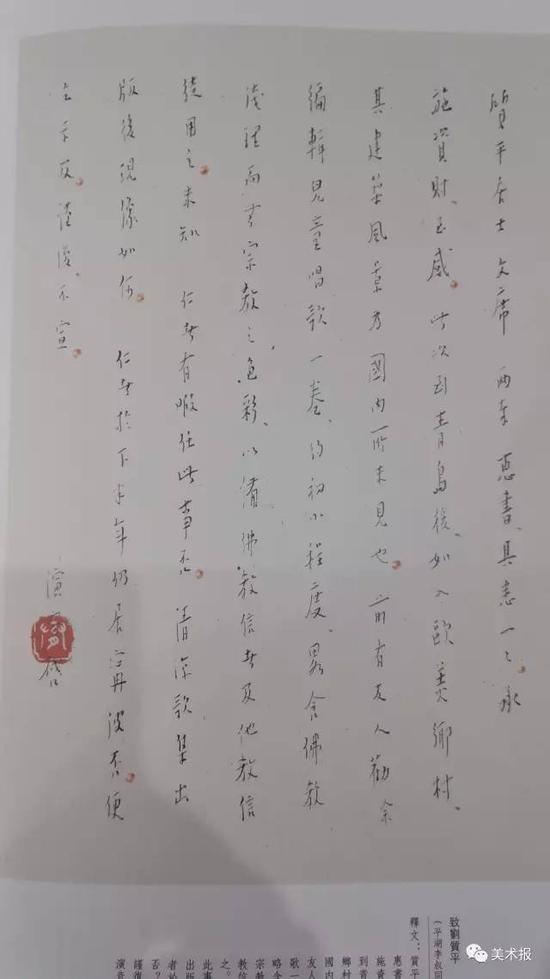 質平居士文席 兩奉惠書、具悉一一。承
施資財、至感。此次到青島後、如入歐美鄉村、
其建築風景為國內所未見也。前有友人勸余
編輯兒童唱歌一卷、約初小程度、畧含佛教
淺理而無宗教之色彩、以備佛教信者及他教信
徒用之。未知 仁者有暇任此事否。清涼歌集出
版後現像如何。 仁者於下半年仍居寧波否。便
乞示及。謹復、不宣。
演音啓
致劉質平
（平湖李叔同
釋文：質平
惠書
施資
到青
鄉村
國內
友人
歌一
略含
宗教
教信
之。
此事
出版
者於
否？
謹復
演音
美术报